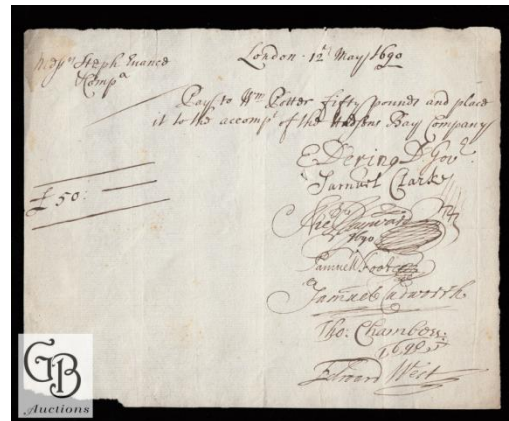 Mess.rs Steph Evance London · 12th May 1690
Comp.a
Pay to Wm Potter fifty pounds and place
it to the accompt of the Hudsons Bay Company
E Dering D: Gov.r
Samuel Clarke
£ 50:
Hayward
1690
Samuell Foote
Samuel Cudworth
Tho: Chambers:
1690
Edward West
GB
Auctions